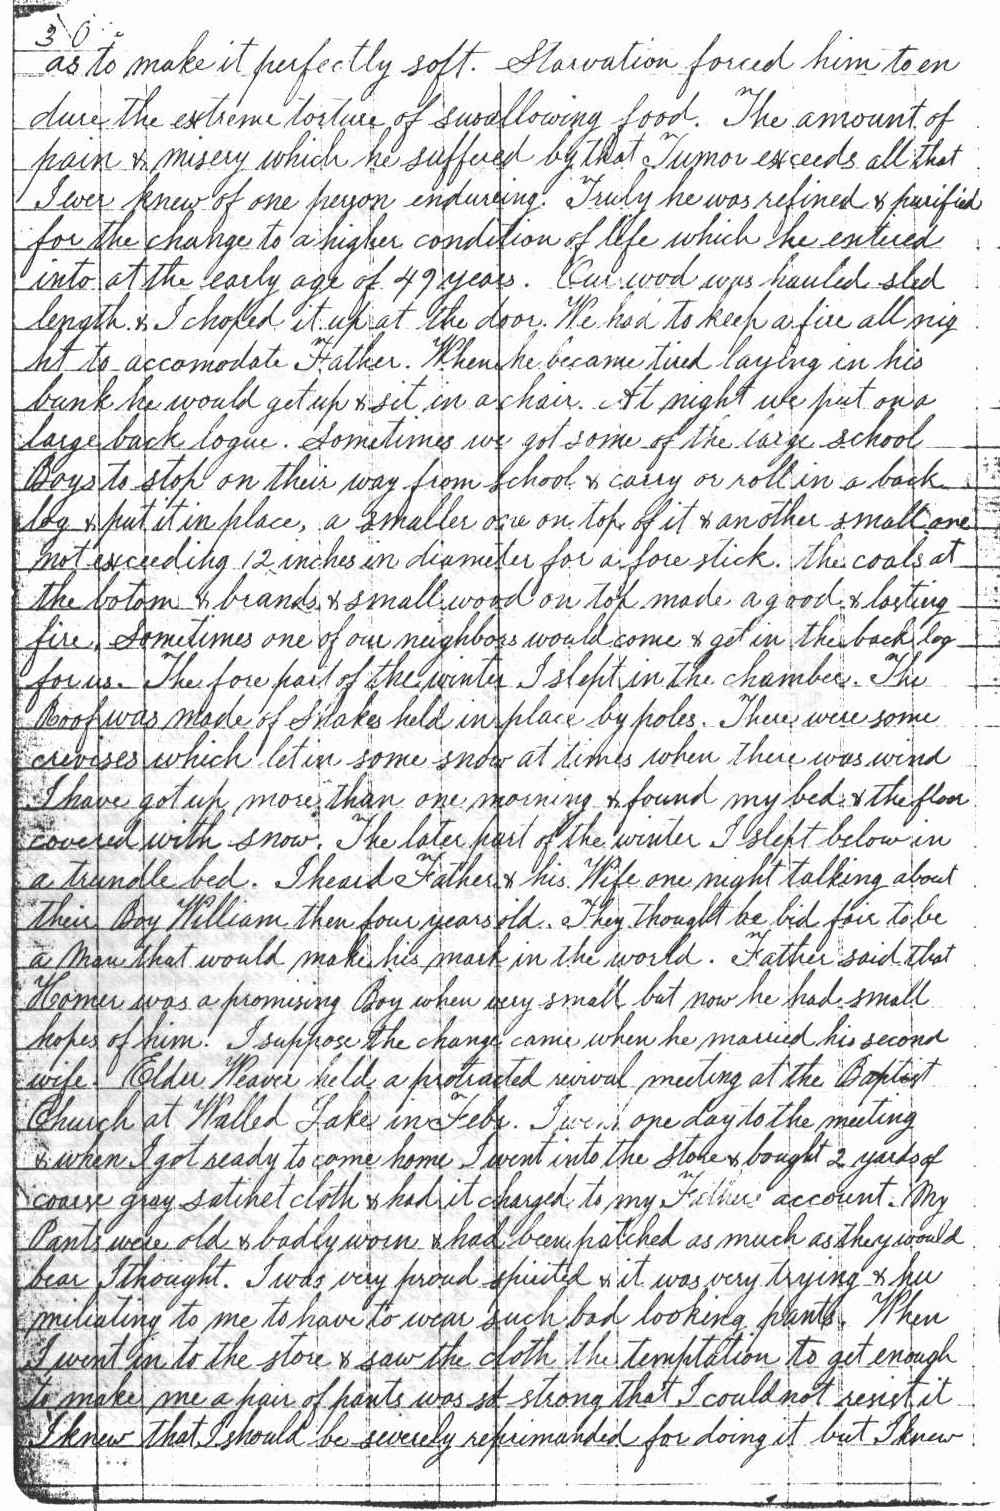 30
as to make it perfectly soft. Starvation forced him to en
dure the extreme torture of swallowing food. The amount of
pain & misery which he suffered by that Tumor exceeds all that
I ever knew of one person endureing. Truly he was refined & purified
for the change to a higher condition of life which he entered
into at the early age of 49 years. Our wood was hauled sled
length & I choped it up at the door. We had to keep a fire all nig
ht to accomodate Father. When he became tired laying in his
bunk he would get up & sit in a chair. At night we put on a
large back logue. Sometimes we got some of the large school
Boys to stop on their way from school & carry or roll in a back
log & put it in place, a smaller one on top of it & another small one
not exceeding 12 inches in diameter for a fore stick. the coals at
the botom & brands & small wood on top made a good & lasting
fire. Sometimes one of our neighbors would come & get in the back log
for us. The fore part of the winter I slept in the chamber. The
Roof was made of Shakes held in place by poles. There were some
crevises which let in some snow at times when there was wind
I have got up more than one morning & found my bed & the floor
covered with snow. The later part of the winter I slept below in
a trundle bed. I heard Father & his Wife one night talking about
their Boy William then four years old. They thought he bid fair to be
a Man that would make his mark in the world. Father said that
Homer was a promising Boy when very small but now he had small
hopes of him. I suppose the change came when he married his second
wife. Elder Weaver held a protracted revival meeting at the Baptist
Church at Walled Lake in Feby. I went one day to the meeting
& when I got ready to come home I went into the store & bought 2 yards of
coarse gray satinet cloth & had it charged to my Fathers account. My
Pants were old & badly worn & had been patched as much as they would
bear I thought. I was very proud spirited & it was very trying & hu
miliating to me to have to wear such bad looking pants. When
I went in to the store & saw the cloth the temptation to get enough
to make me a pair of pants was so strong that I could not resist it
I knew that I should be severely reprimanded for doing it but I knew